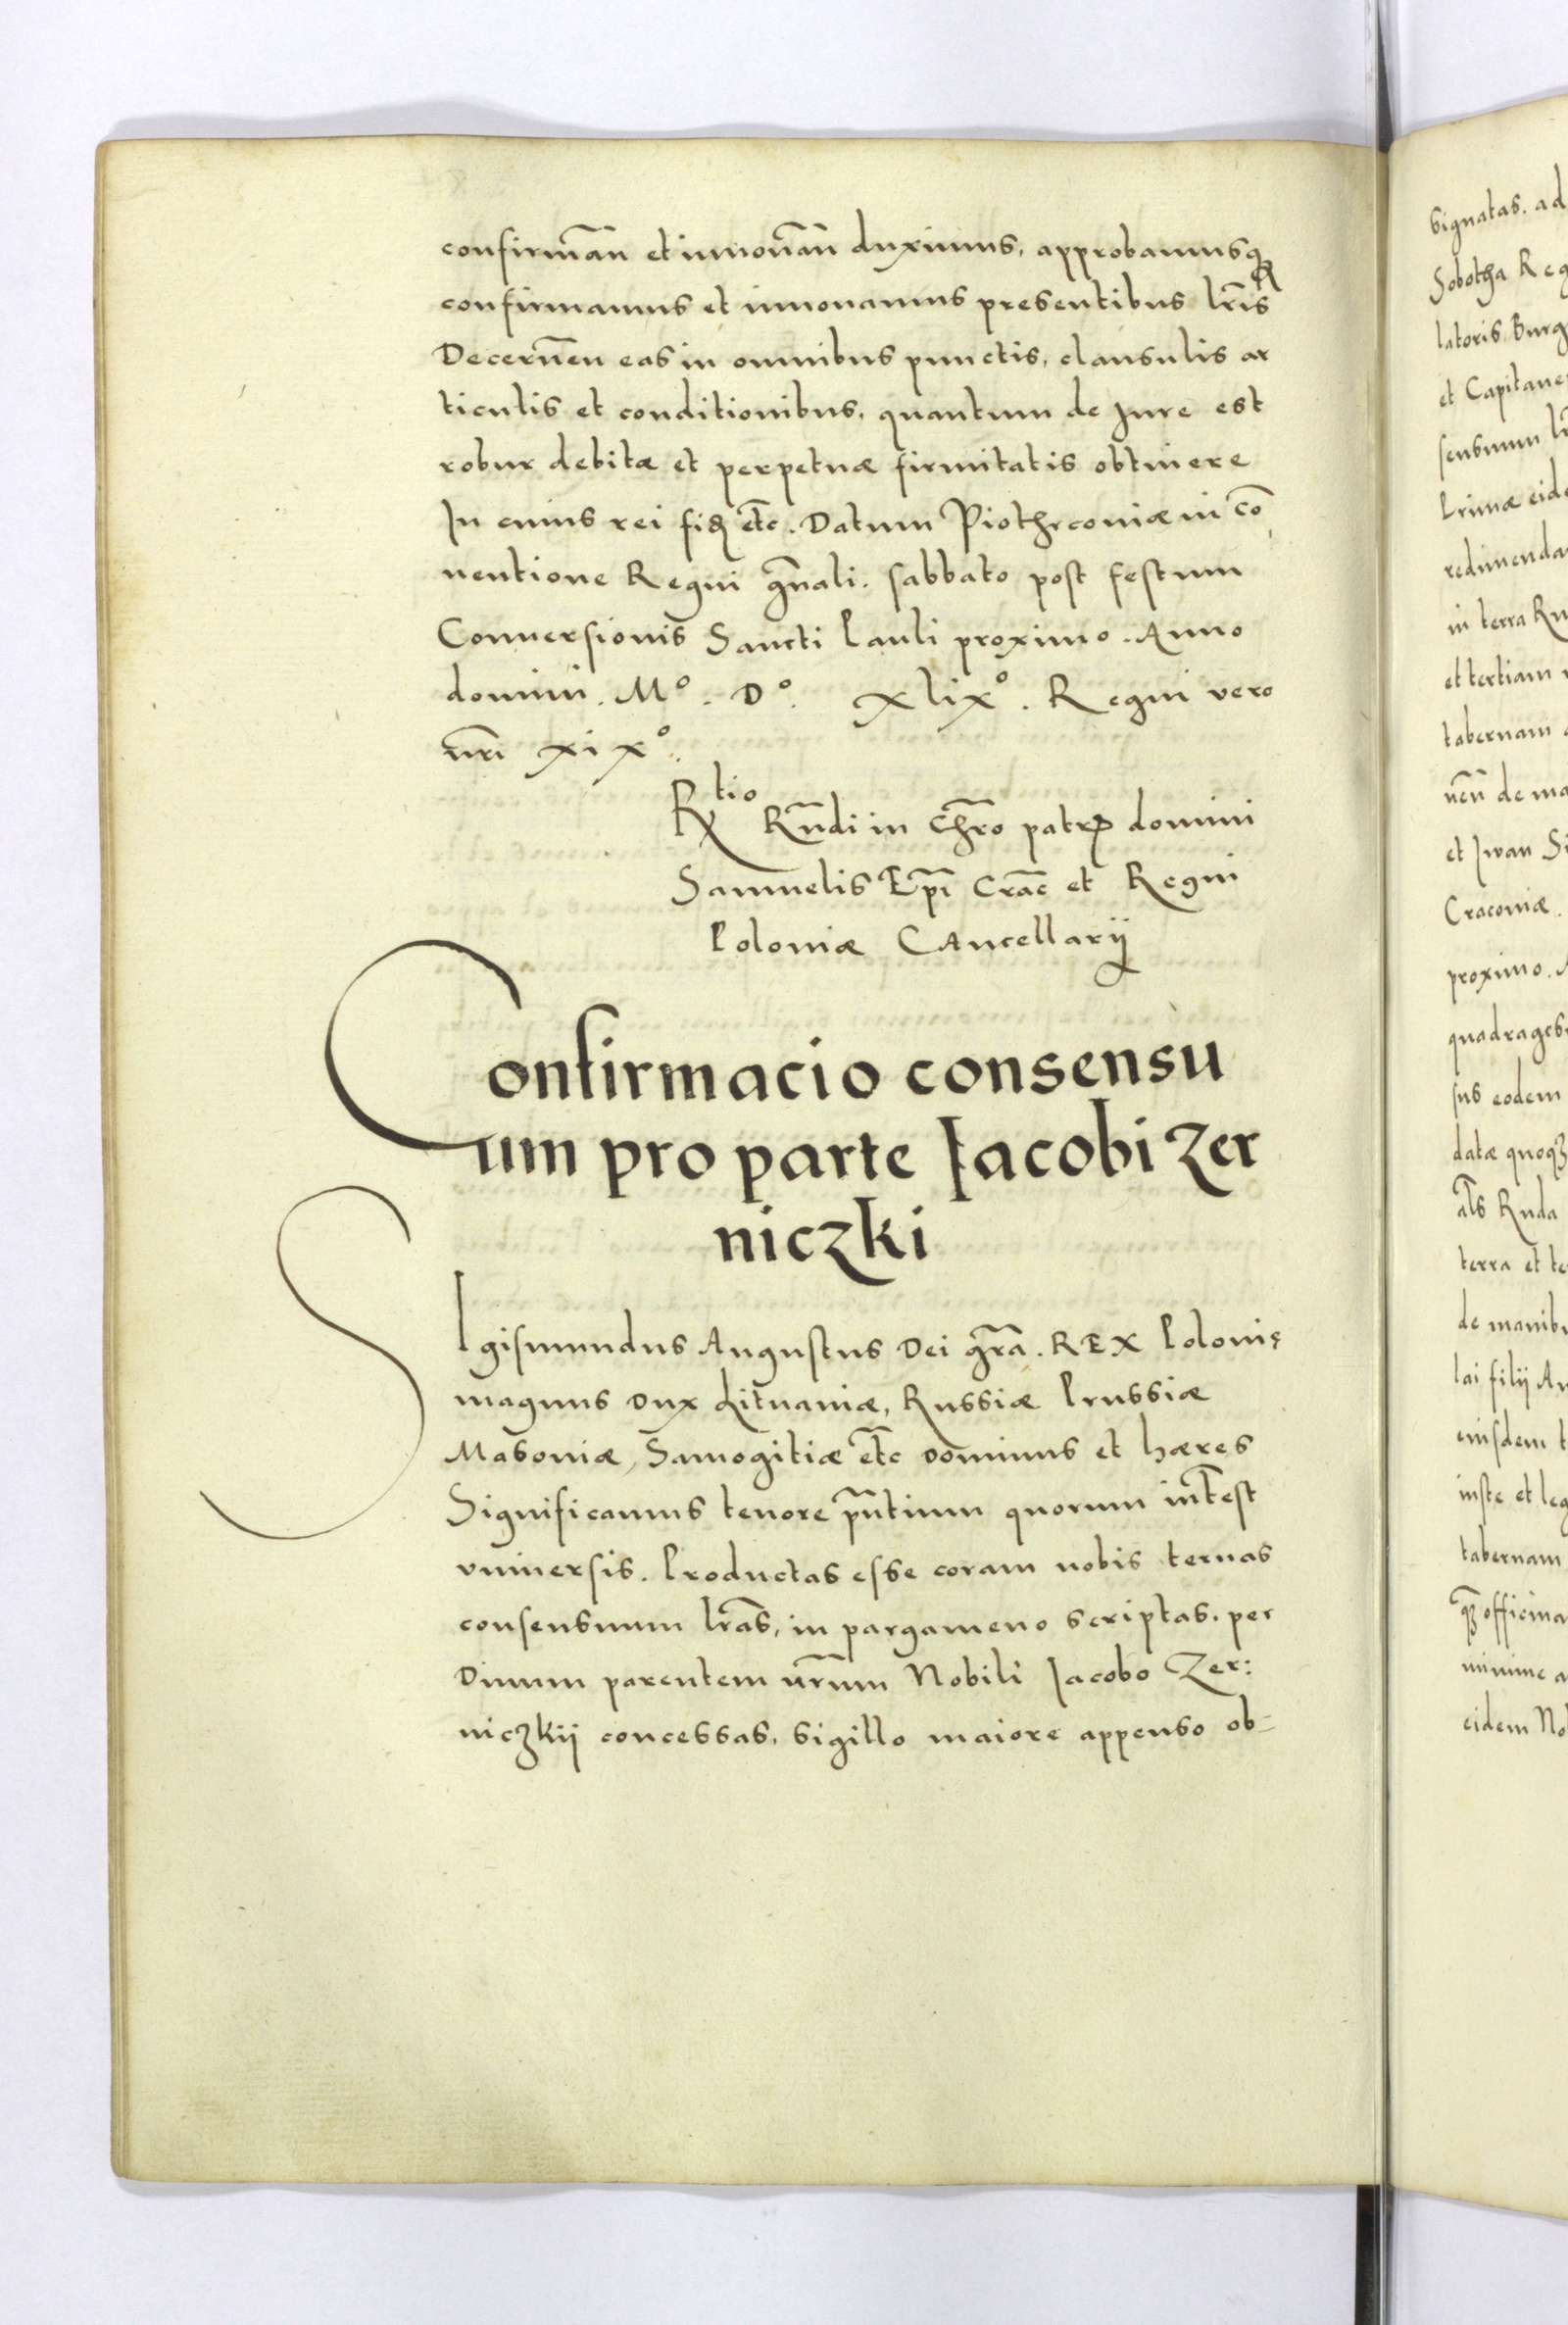 confirmãn et innouãn duximus, approbamusqʒ
confirmamus et innouamus presentibus lr̃is
Decernẽn eas in omnibus punctis, clausulis ar
ticulis et conditionibus, quantum de Jure est
robur debitæ et perpetuæ firmitatis obtinere
In cuius rei fiđ etc̃. Datum Piothrconiæ in cõ
uentione Regni gñali. Sabbato post festum
Conuersionis Sancti Pauli proximo. Anno
domini. Mº. Dº. xlixº. Regni vero
nr̃i xixº.
Rtio Rñdi in Chr̃o patrꝭ domini
Samuelis Ep̃i Crac̃ et Regni
Poloniæ Cancellarij
Confirmacio consensu
um pro parte Iacobi Zer
niczki
SIgismundus Augustus Dei gr̃a. REX Polonię
magnus Dux Lituaniæ, Russiæ Prussiæ
Masoniæ, Samogitiæ etc̃ Dominus et hæres
Significamus tenore pñtium quorum inter̃est
vniuersis. Productas esse coram nobis ternas
consensuum lr̃as, in pargameno scriptas, per
Diuum parentem nr̃um Nobili Iacobo Zer:
niczkij concessas, sigillo maiore appenso ob=
signatas. ad
Sobotha Reg
latoris, Burg
et Capitane
sensuum lr̃
Primæ eide
redimenda
in terra Ru
et tertiam
tabernam
de ma
et Iwan Si
Cracoviæ.
proximo. A
quadrages
sus eodem
datæ quoqʒ
al̃s Ruda
terra et te
de manib
lai filij An
eiusdem t
iuste et leg
tabernam
officina
minime a
eidem No